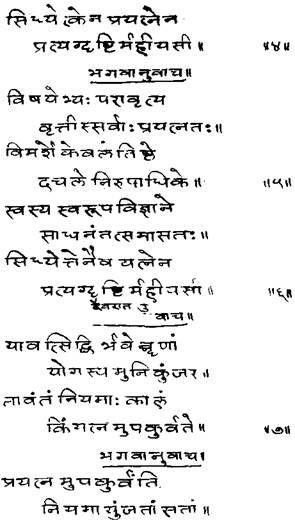 सिध्येत्केन प्रयत्नेन
प्रत्यग्दृष्टिर्महीयसी॥ ॥४॥
भगवानुवाच॥
विषयेभ्यः परावृत्य
वृत्तीस्सर्वाः प्रयत्नतः॥
विमर्शे केवलं तिष्ठे
दचले निरुपाधिके॥ ॥५॥
स्वस्य स्वरूपविज्ञाने
साधनं तत्समासतः॥
सिध्येत्तेनैव यत्नेन
प्रत्यग्दृष्टिर्महीयसी॥ ॥६॥
दैवरात उ
वाच॥
यावत्सिद्धिर्भवेन्नृणां
योगस्य मुनिकुंजर॥
तावंतं नियमाः कालं
किं यत्नमुपकुर्वते॥ ॥७॥
भगवानुवाच।
प्रयत्नमुपकुर्वंति
नियमा युंजतां सतां॥